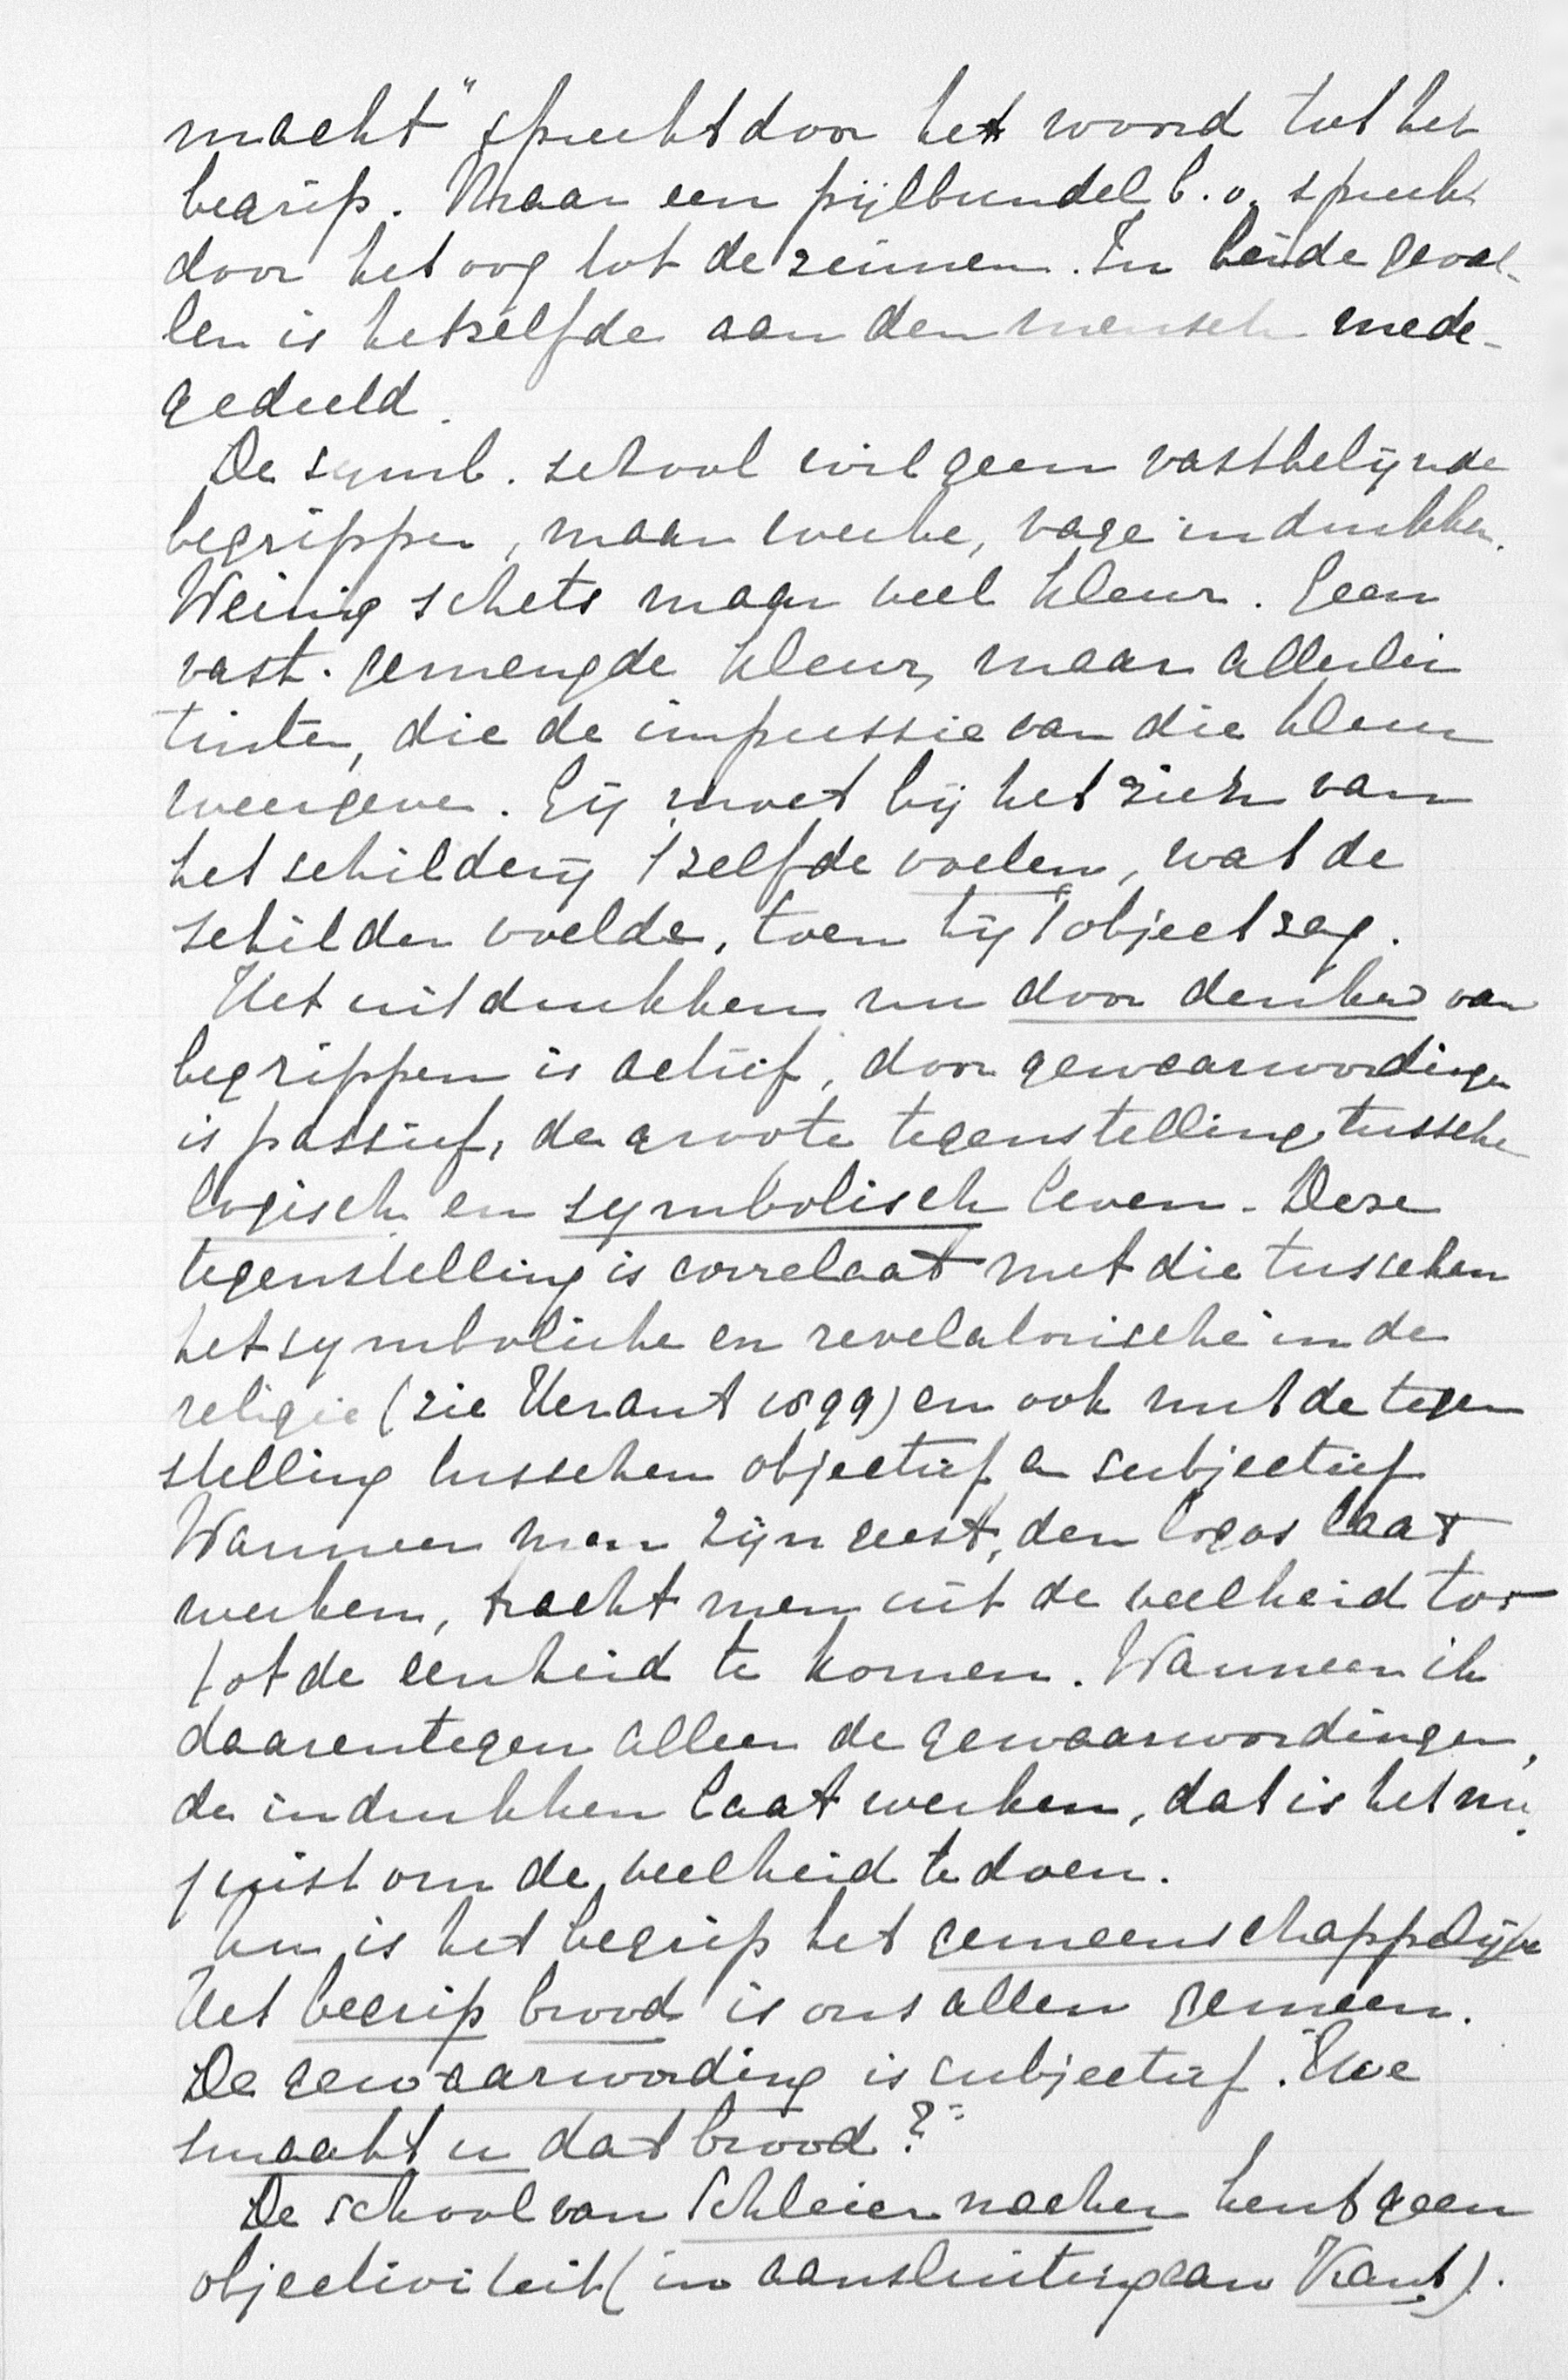 macht" spreekt door het woord tot het
begrip. Maar een pijlbundel b.v. spreekt
door het oog tot de zinnen. In beide geval-
len is hetzelfde aan den mensch mede-
gedeeld.
De symb. school wil geen vastbelijnde
begrippen, maar weeke, vage indrukken.
Weinig schets maar veel kleur. Geen
vast. gemengde kleur, maar allerlei
tinten, die de impressie van die kleur
weergeven. Gij moet bij het zien van
het schilderij 't zelfde voelen, wat de
schilder voelde, toen hij 't object zag.
Het uitdrukken nu door denken van
begrippen is actief, door gewaarwordingen
is passief, de groote tegenstelling tusschen
logisch en symbolisch leven. Deze
tegenstelling is correlaat met die tusschen
het symbolische en revelatorische in de
religie (zie Heraut 1899) en ook met de tegen
stelling tusschen objectief en subjectief
Wanneer men zijn geest, den logos laat
werken, tracht men uit de veelheid tot
tot de eenheid te komen. Wanneer ik
daarentegen alleen de gewaarwordingen,
de indrukken laat werken, dat is het mij
juist om de veelheid te doen.
Nu is het begrip het gemeenschappelijke
Het begrip brood is ons allen gemeen.
De gewaarwording is subjectief. "Hoe
smaakt u dat brood?"
De school van Schleiermacher kent geen
objectiviteit (in aansluiting aan Kant).